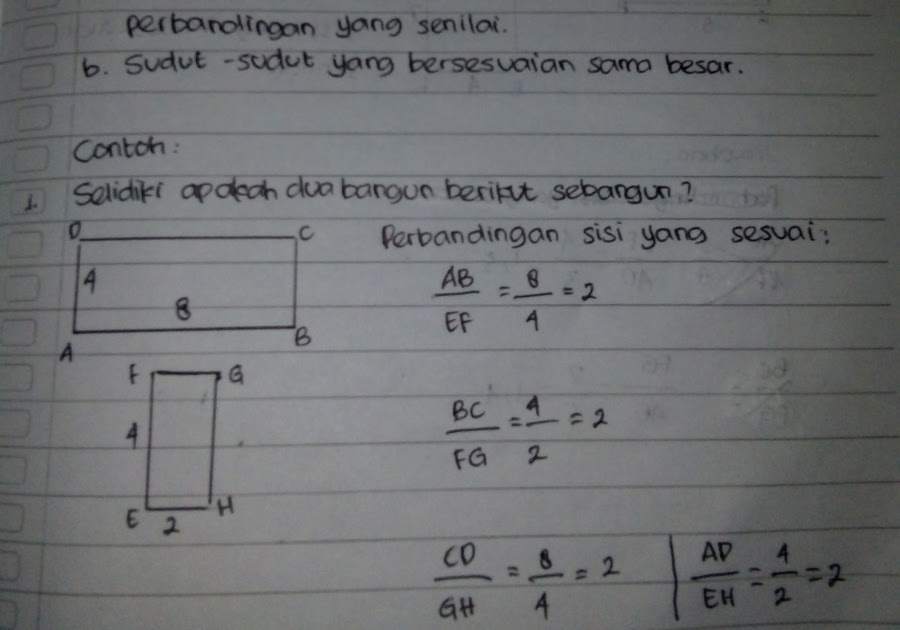 perbandingan yang senilai.
b. Sudut - sudut yang bersesuaian sama besar.
Contoh:
1. Selidiki apakah dua bangun berikut sebangun?
D C
4
8
A B
F G
4
E 2 H
Perbandingan sisi yang sesuai:
AB/EF = 8/4 = 2
BC/FG = 4/2 = 2
CD/GH = 8/4 = 2 | AD/EH = 4/2 = 2